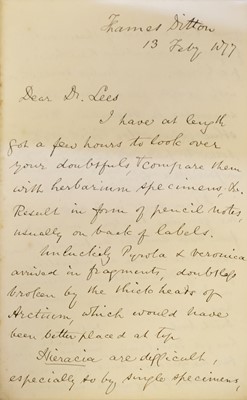 Thames Ditton
13 Feby 1877
Dear Dr. Lees
I have at length
got a few hours to look over
your doubtfuls, & compare them
with herbarium specimens, &c.
Result in form of pencil notes,
usually on back of labels.
Unluckily Pyrola & Veronica
arrived in fragments, doubtless
broken by the thick heads of
Arctium, which would have
been better placed at top.
Hieracia are difficult,
especially so by single specimens,